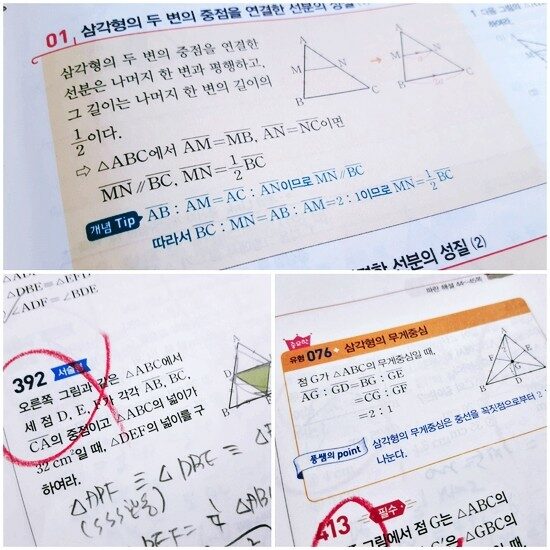 01 삼각형의 두 변의 중점을 연결한 선분의 성질
삼각형의 두 변의 중점을 연결한
선분은 나머지 한 변과 평행하고,
그 길이는 나머지 한 변의 길이의
1/2이다.
⇨ △ABC에서 AM=MB, AN=NC이면
MN∥BC, MN=1/2BC
개념 Tip AB : AM=AC : AN이므로 MN∥BC
따라서 BC : MN=AB : AM=2 : 1이므로 MN=1/2BC
A
M
N
B
C
A
M
N
B
C
1 다음 그림의
하여라.
선분의 성질 (2)
△DBE=△EFD
∠ADF=∠BDE
392 서술형
오른쪽 그림과 같은 △ABC에서
세 점 D, E, F가 각각 AB, BC,
CA의 중점이고 △ABC의 넓이가
32 cm²일 때, △DEF의 넓이를 구
하여라.
A
D
B
△ADF≡△DBE≡
(SSS합동)
중요해
유형 076 삼각형의 무게중심
점 G가 △ABC의 무게중심일 때,
AG : GD=BG : GE
=CG : GF
=2 : 1
A
F
E
G
B
D
풍쌤의 point 삼각형의 무게중심은 중선을 꼭짓점으로부터 2 :
나눈다.
413 필수
그림에서 점 G는 △ABC의
△GBC의